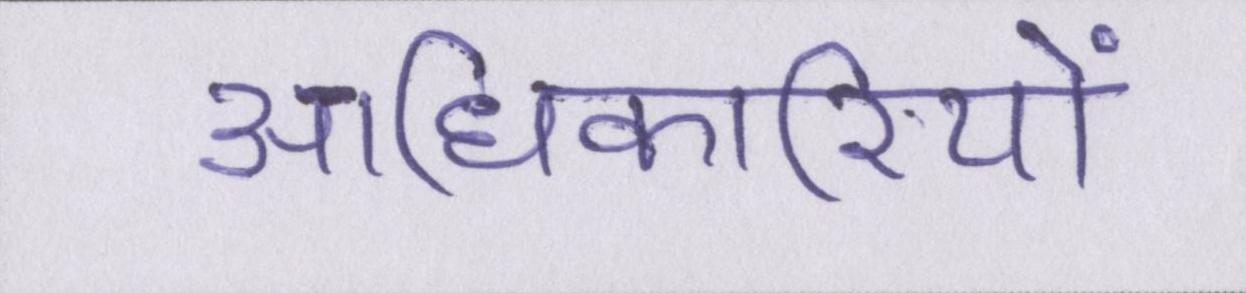 आधिकारियों